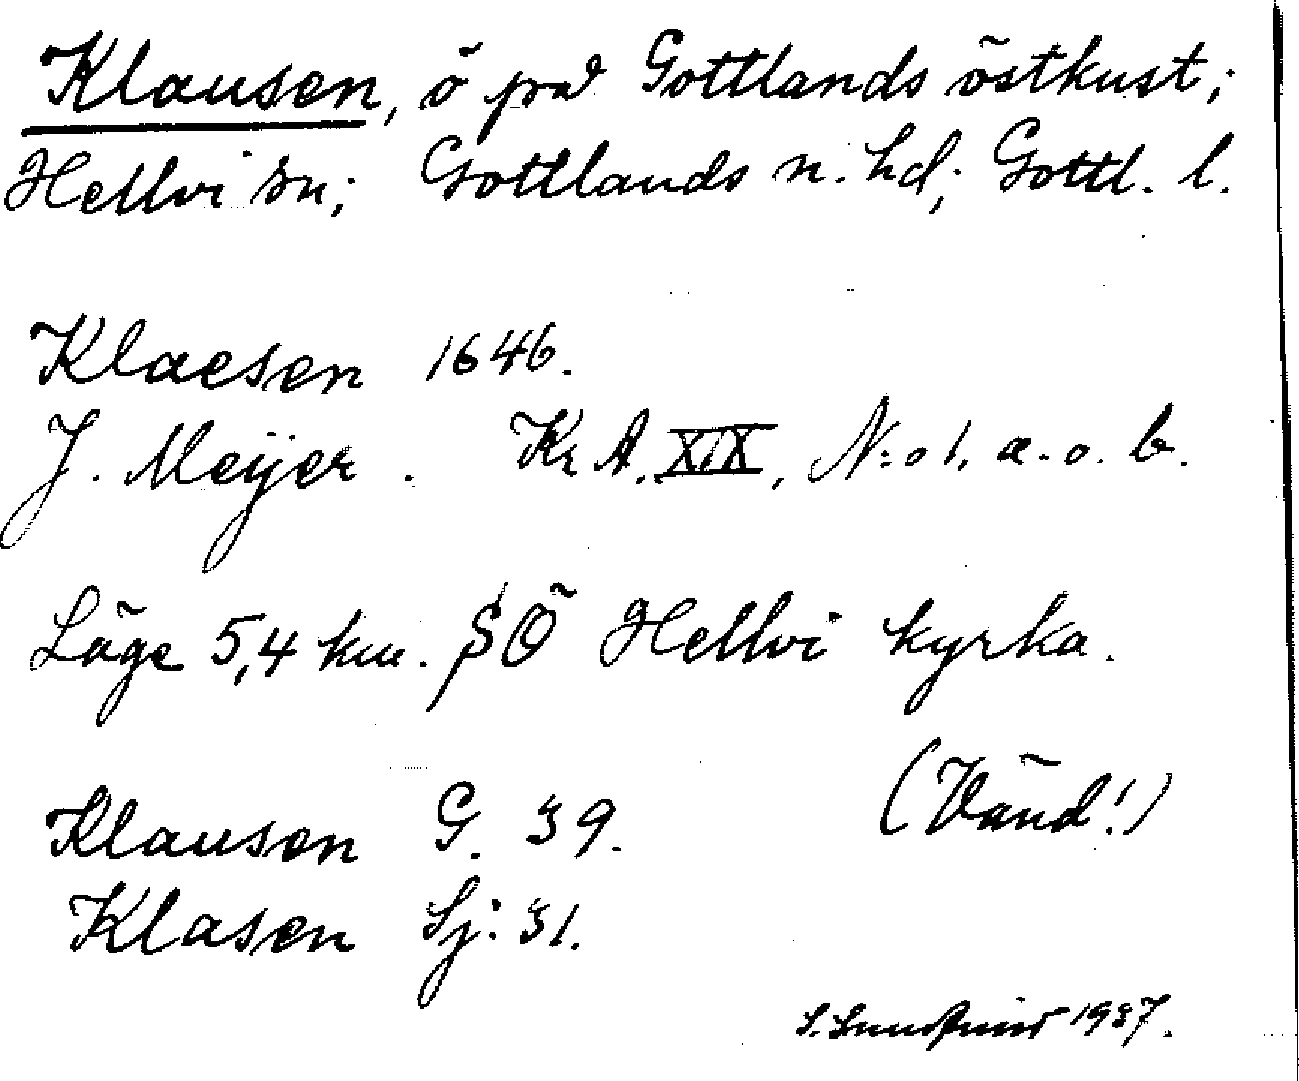 Klausen, ö på Gottlands östkust;
Hellvi sn; Gottlands n. hd; Gottl. l.
Klaesen 1646.
J. Meÿer. Kr A. XIX, N:o 1. a. o. b.
Läge 5,4 km. SÖ Hellvi kyrka.
(Vänd!)
Klausen G. 39.
Klasen Sj: 31.
1937.